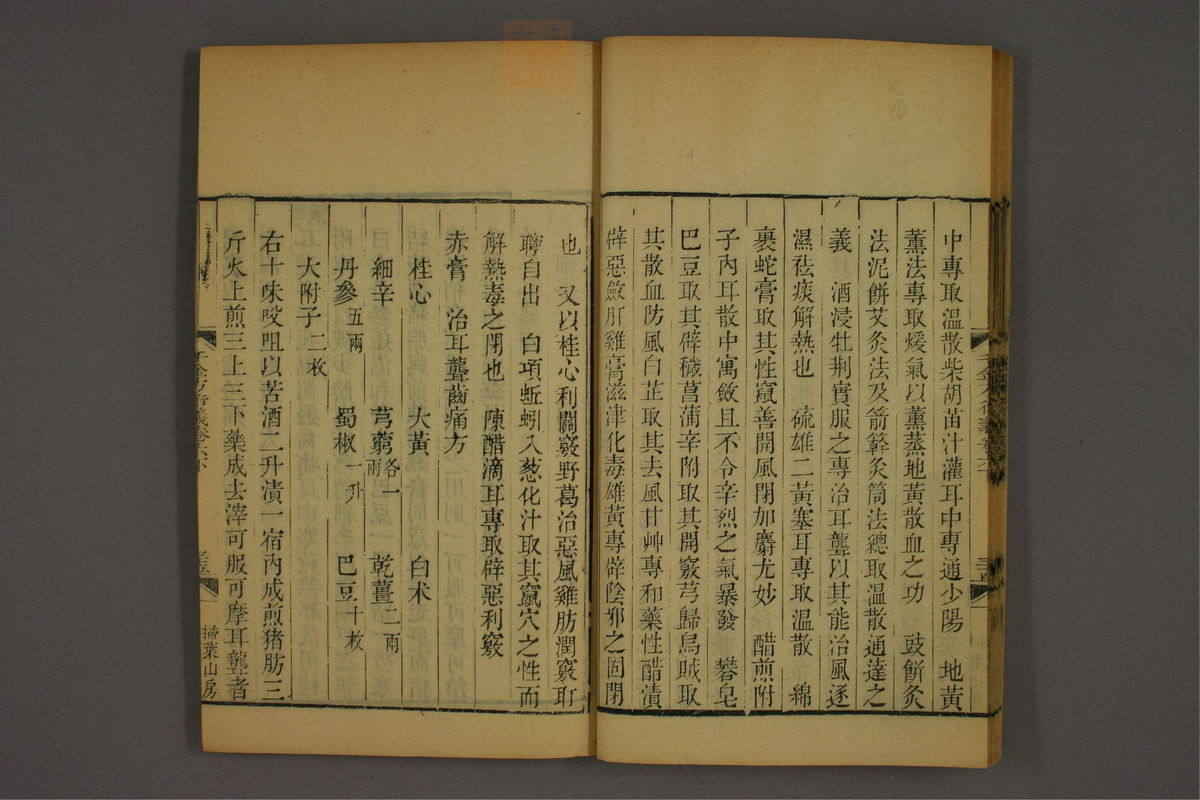 中專取温散柴胡苗汁灌耳中專通少陽　地黃
薰法專取煖氣以薰蒸地黃散血之功　豉餅灸
法泥餅艾灸法及箭簳灸筒法總取温散通達之
義　酒浸牡荆實服之專治耳聾以其能治風逐
濕祛痰解熱也　硫雄二黃塞耳專取温散　綿
裹蛇膏取其性竄善開風閉加麝尤妙　醋煎附
子內耳散中寓斂且不令辛烈之氣暴發　礬皂
巴豆取其辟穢菖蒲辛附取其開竅芎歸烏賊取
其散血防風白芷取其去風甘艸專和藥性醋漬
辟惡斂肝雞膏滋津化毒雄黃專辟陰邪之固閉
也　又以桂心利關竅野葛治惡風雞肪潤竅耵
聹自出　白項蚯蚓入葱化汁取其竄穴之性而
解熱毒之閉也　陳醋滴耳專取辟惡利竅
赤膏　治耳聾齒痛方
桂心　大黃　白术
細辛　芎藭各一兩　乾薑二兩
丹參五兩　蜀椒一升　巴豆十枚
大附子二枚
右十味㕮咀以苦酒二升漬一宿內成煎猪肪三
斤火上煎三上三下藥成去滓可服可摩耳聾者
千金方衍義卷六下
掃葉山房